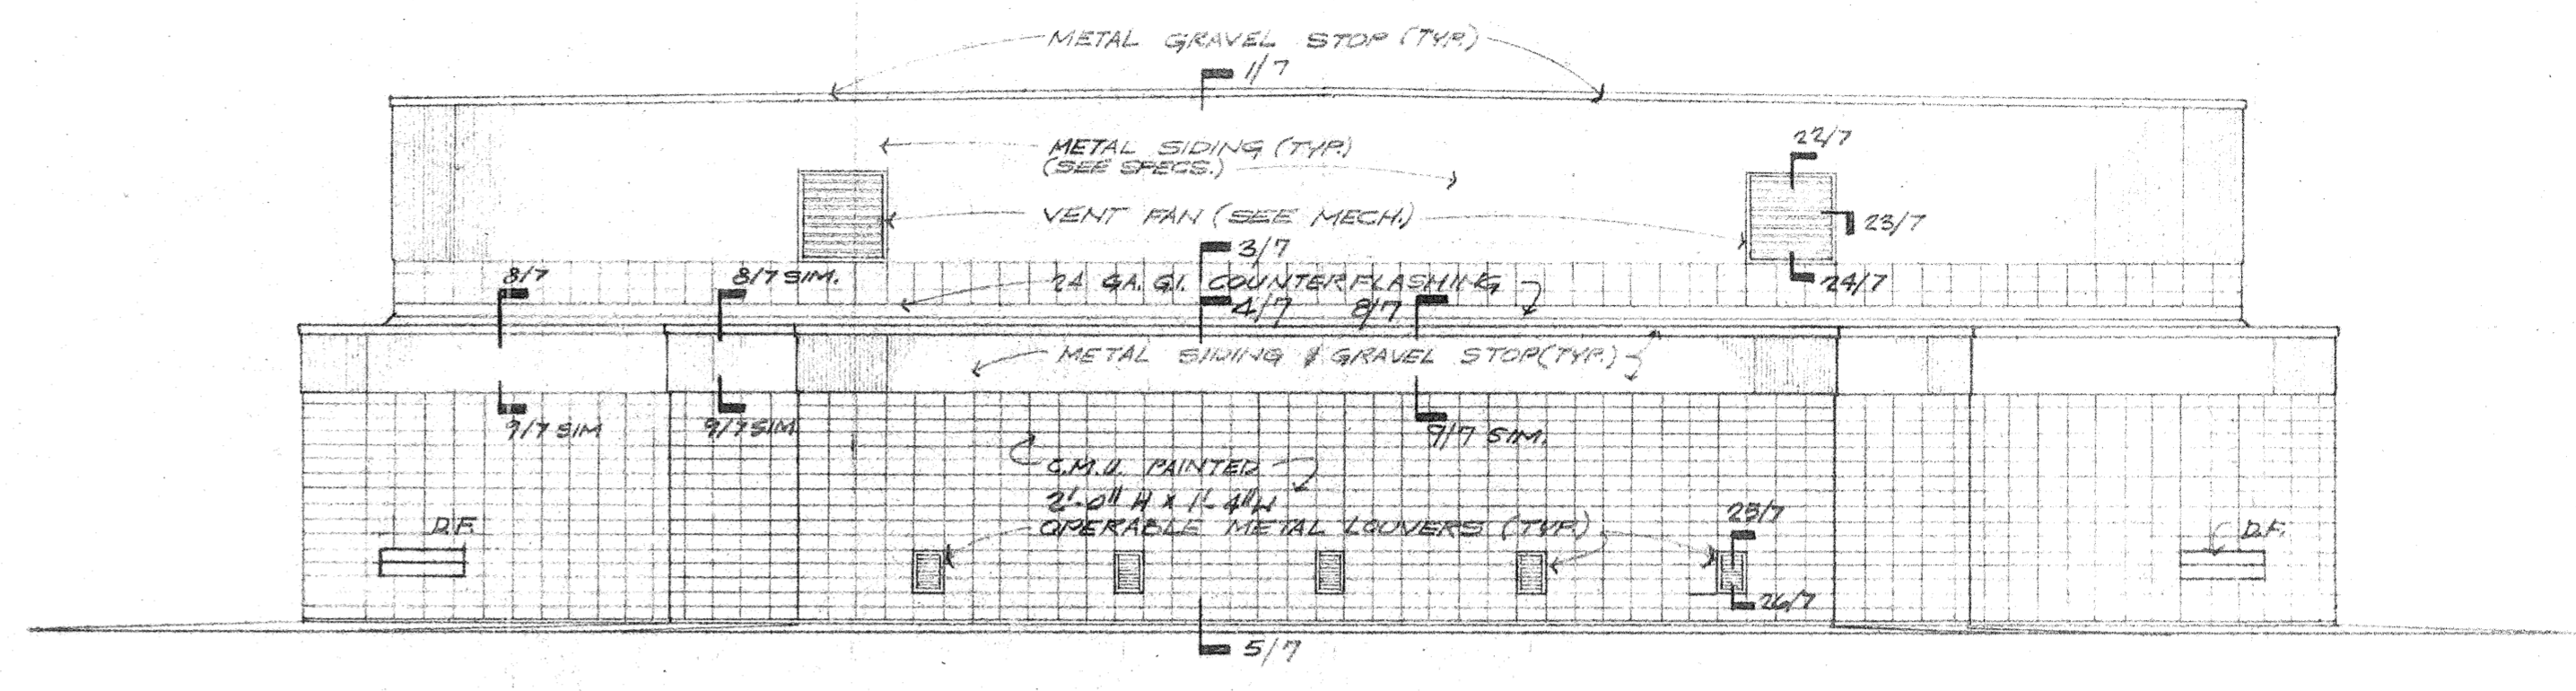 METAL GRAVEL STOP (TYP.)
1/7
METAL SIDING (TYP.)
(SEE SPECS.)
22/7
VENT FAN (SEE MECH.)
23/7
3/7
8/7
8/7 SIM.
24 GA. G.I. COUNTERFLASHING
24/7
4/7
8/7
METAL SIDING & GRAVEL STOP (TYP.)
9/7 SIM
9/7 SIM
9/7 SIM.
C.M.U. PAINTED
2'-0" H X 1'-4" W
OPERABLE METAL LOUVERS (TYP.)
25/7
D.F.
D.F.
26/7
5/7